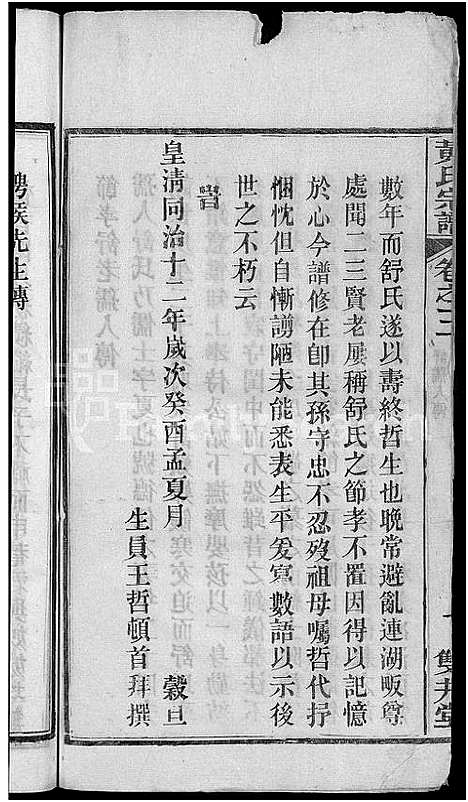 黃氏宗譜
卷之三
雙井堂
數年而舒氏遂以壽終哲生也晚常避亂連湖畈尊
處聞二三賢老屢稱舒氏之節孝不置因得以記憶
於心今譜修在卽其孫守忠不忍歿祖母囑哲代抒
悃忱但自慚謭陋未能悉表生平爰寫數語以示後
世之不朽云
皇清同治十二年歲次癸酉孟夏月
穀旦
生員王哲頓首拜撰
先生傳